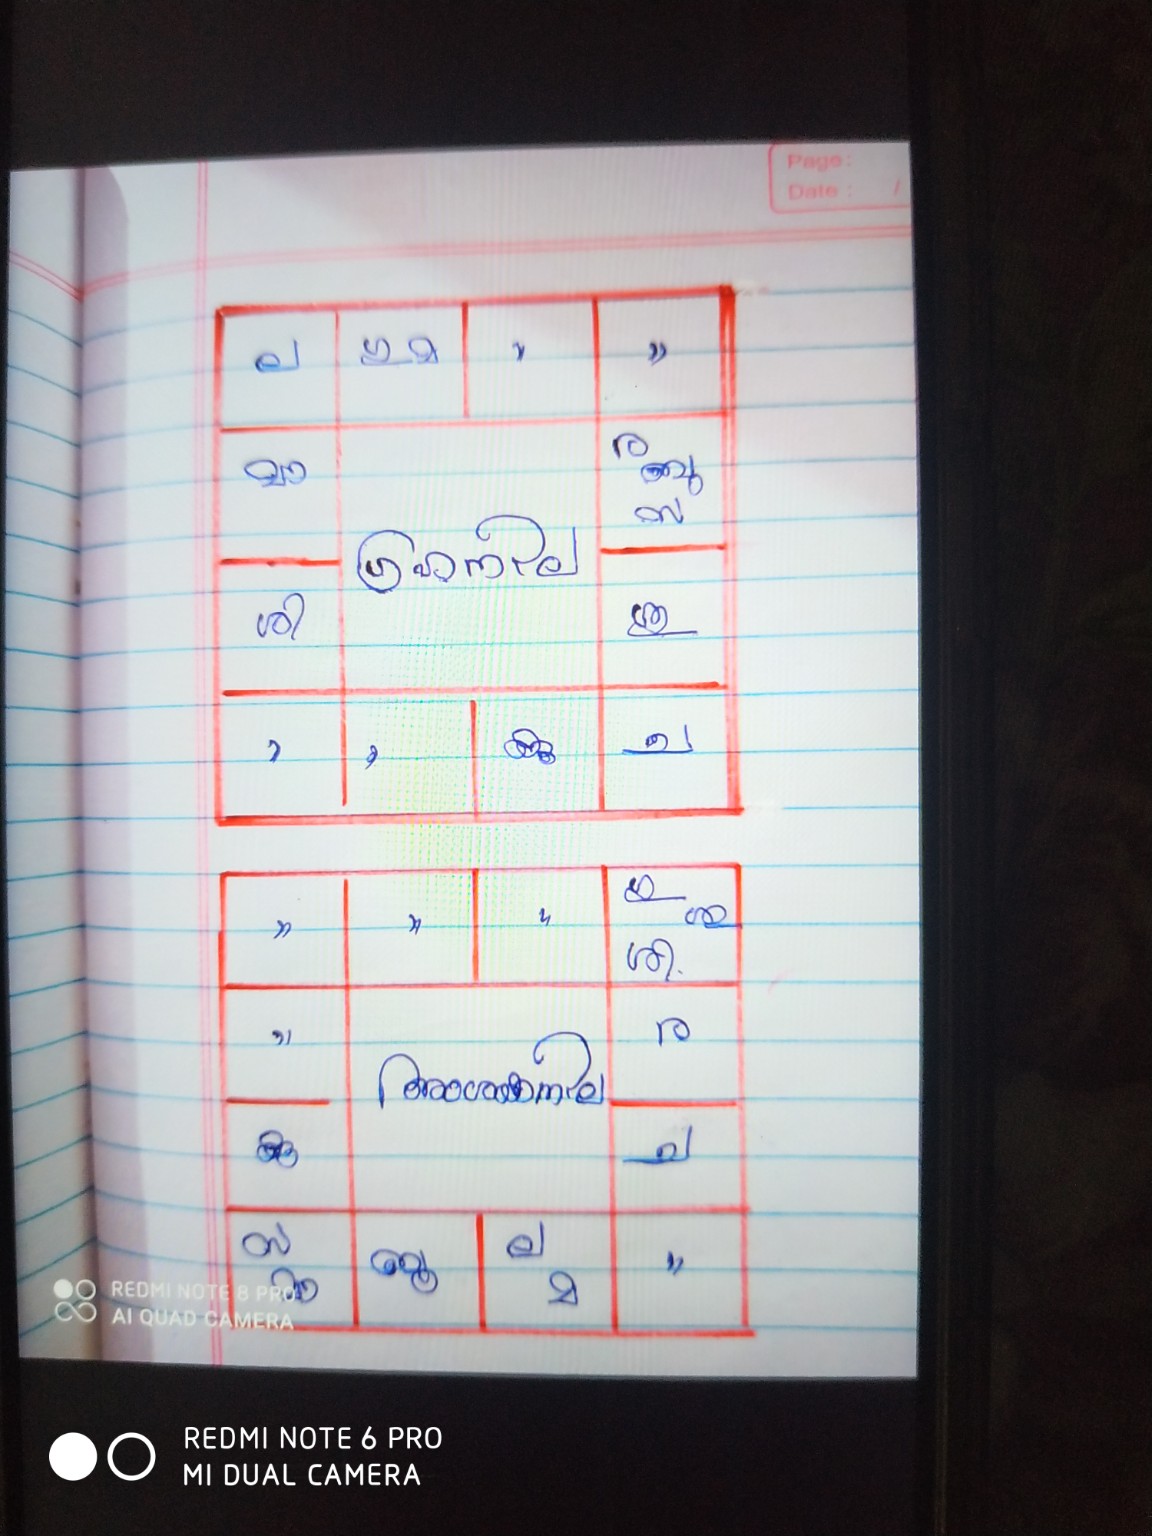 Page:
Date : /
ല ഗു മ , "
മാ ര
ബു
സ
ഗ്രഹനില
ശി ശു
, , കു ച
" " " ഗു
ശു
ശി.
" ര
അംശകനില
കു ച
സ
മാ ബു ല
മ "
REDMI NOTE 8 PRO
AI QUAD CAMERA
REDMI NOTE 6 PRO
MI DUAL CAMERA